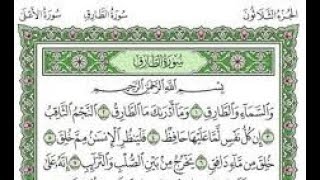 الجزء الثلاثون سورة الطارق سورة الأعلى
سورة الطارق
بسم الله الرحمن الرحيم
والسماء والطارق ١ وما أدرىك ما الطارق ٢ النجم الثاقب
٣ إن كل نفس لما عليها حافظ ٤ فلينظر الإنسن مم خلق ٥
خلق من ماء دافق ٦ يخرج من بين الصلب والترائب ٧ إنه على